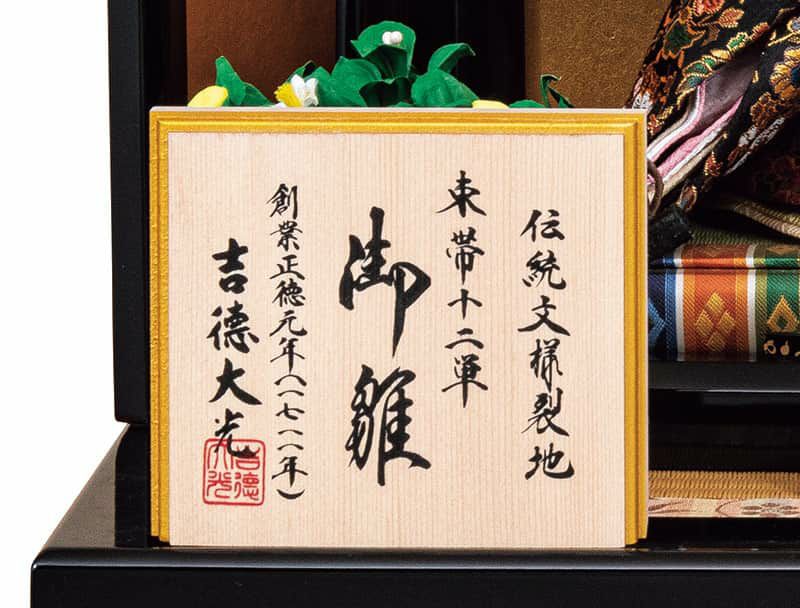 伝統文様裂地
束帯十二単
御雛
創業正徳元年(一七一一年)
吉德大光
吉德大光